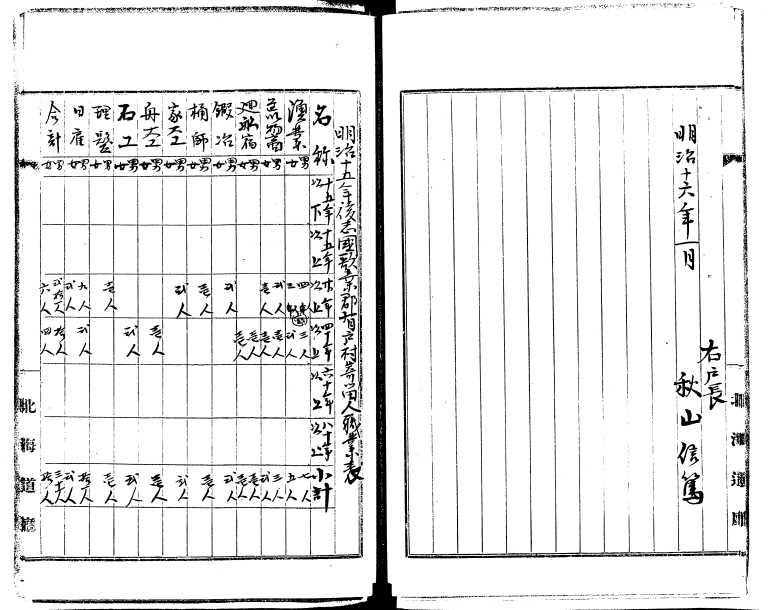 明治十六年一月
右戸長
秋山信篤
北海道廳
明治十五年後志國歌棄郡有戸村寄留人職業表
名称 十五年以下 十五年以上 廿年以上 四十年以上 六十年以上 八十年以上 小計
漁業 男 四人 三人 七人
女 三人 弐人 五人
男 弐人 壱人 三人
女 壱人 壱人 弐人
廻船宿 男 壱人 壱人
女 壱人 壱人
鍛冶 男 弐人 弐人
女
桶師 男 壱人 壱人
女
家大工 男 弐人 弐人
女
舟大工 男 壱人 壱人
女
石工 男 弐人 弐人
女
理髪 男 壱人 壱人
女
日雇 男 九人 弐人 拾一人
女 弐人 弐人
合計 男 弐拾人 拾人 三十人
女 六人 四人 拾人
北海道廳